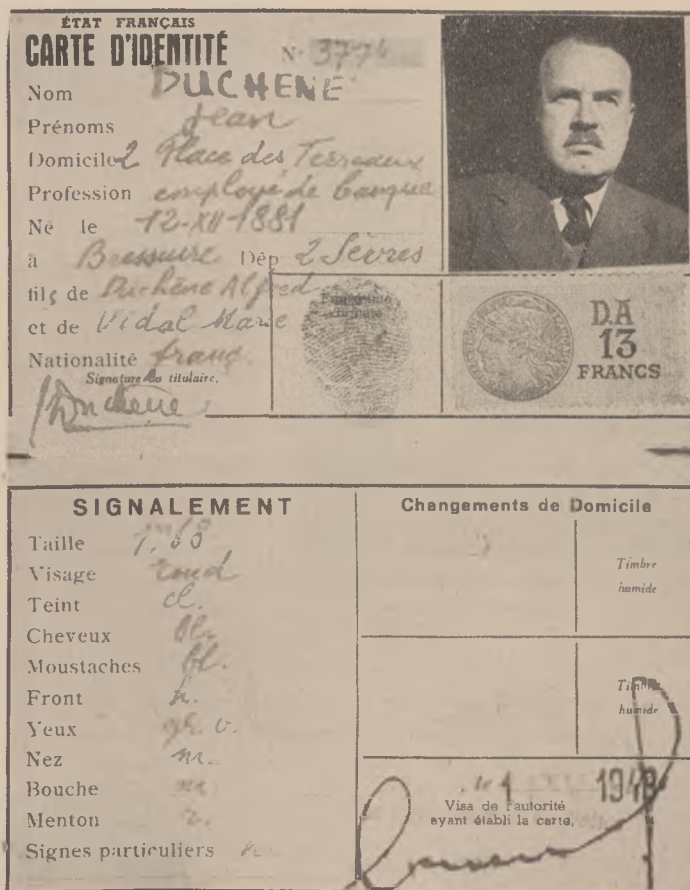 ÉTAT FRANÇAIS
CARTE D'IDENTITÉ N° 3774
Nom DUCHENE
Prénoms Jean
Domicile 2 Place des Terreaux
Profession employé de banque
Né le 12-XII-1881
à Bressuire Dép 2 Sèvres
fils de Duchêne Alfred
et de Vidal Marie
Nationalité franç.
Signature du titulaire,
Duchene
D.A
13
FRANCS
SIGNALEMENT
Taille
Visage rond
Teint cl.
Cheveux bl.
Moustaches bl.
Front
Yeux
Nez
Bouche
Menton
Signes particuliers
Changements de Domicile
Timbre
humide
Timbre
humide
1 194
Visa de l'autorité
ayant établi la carte,